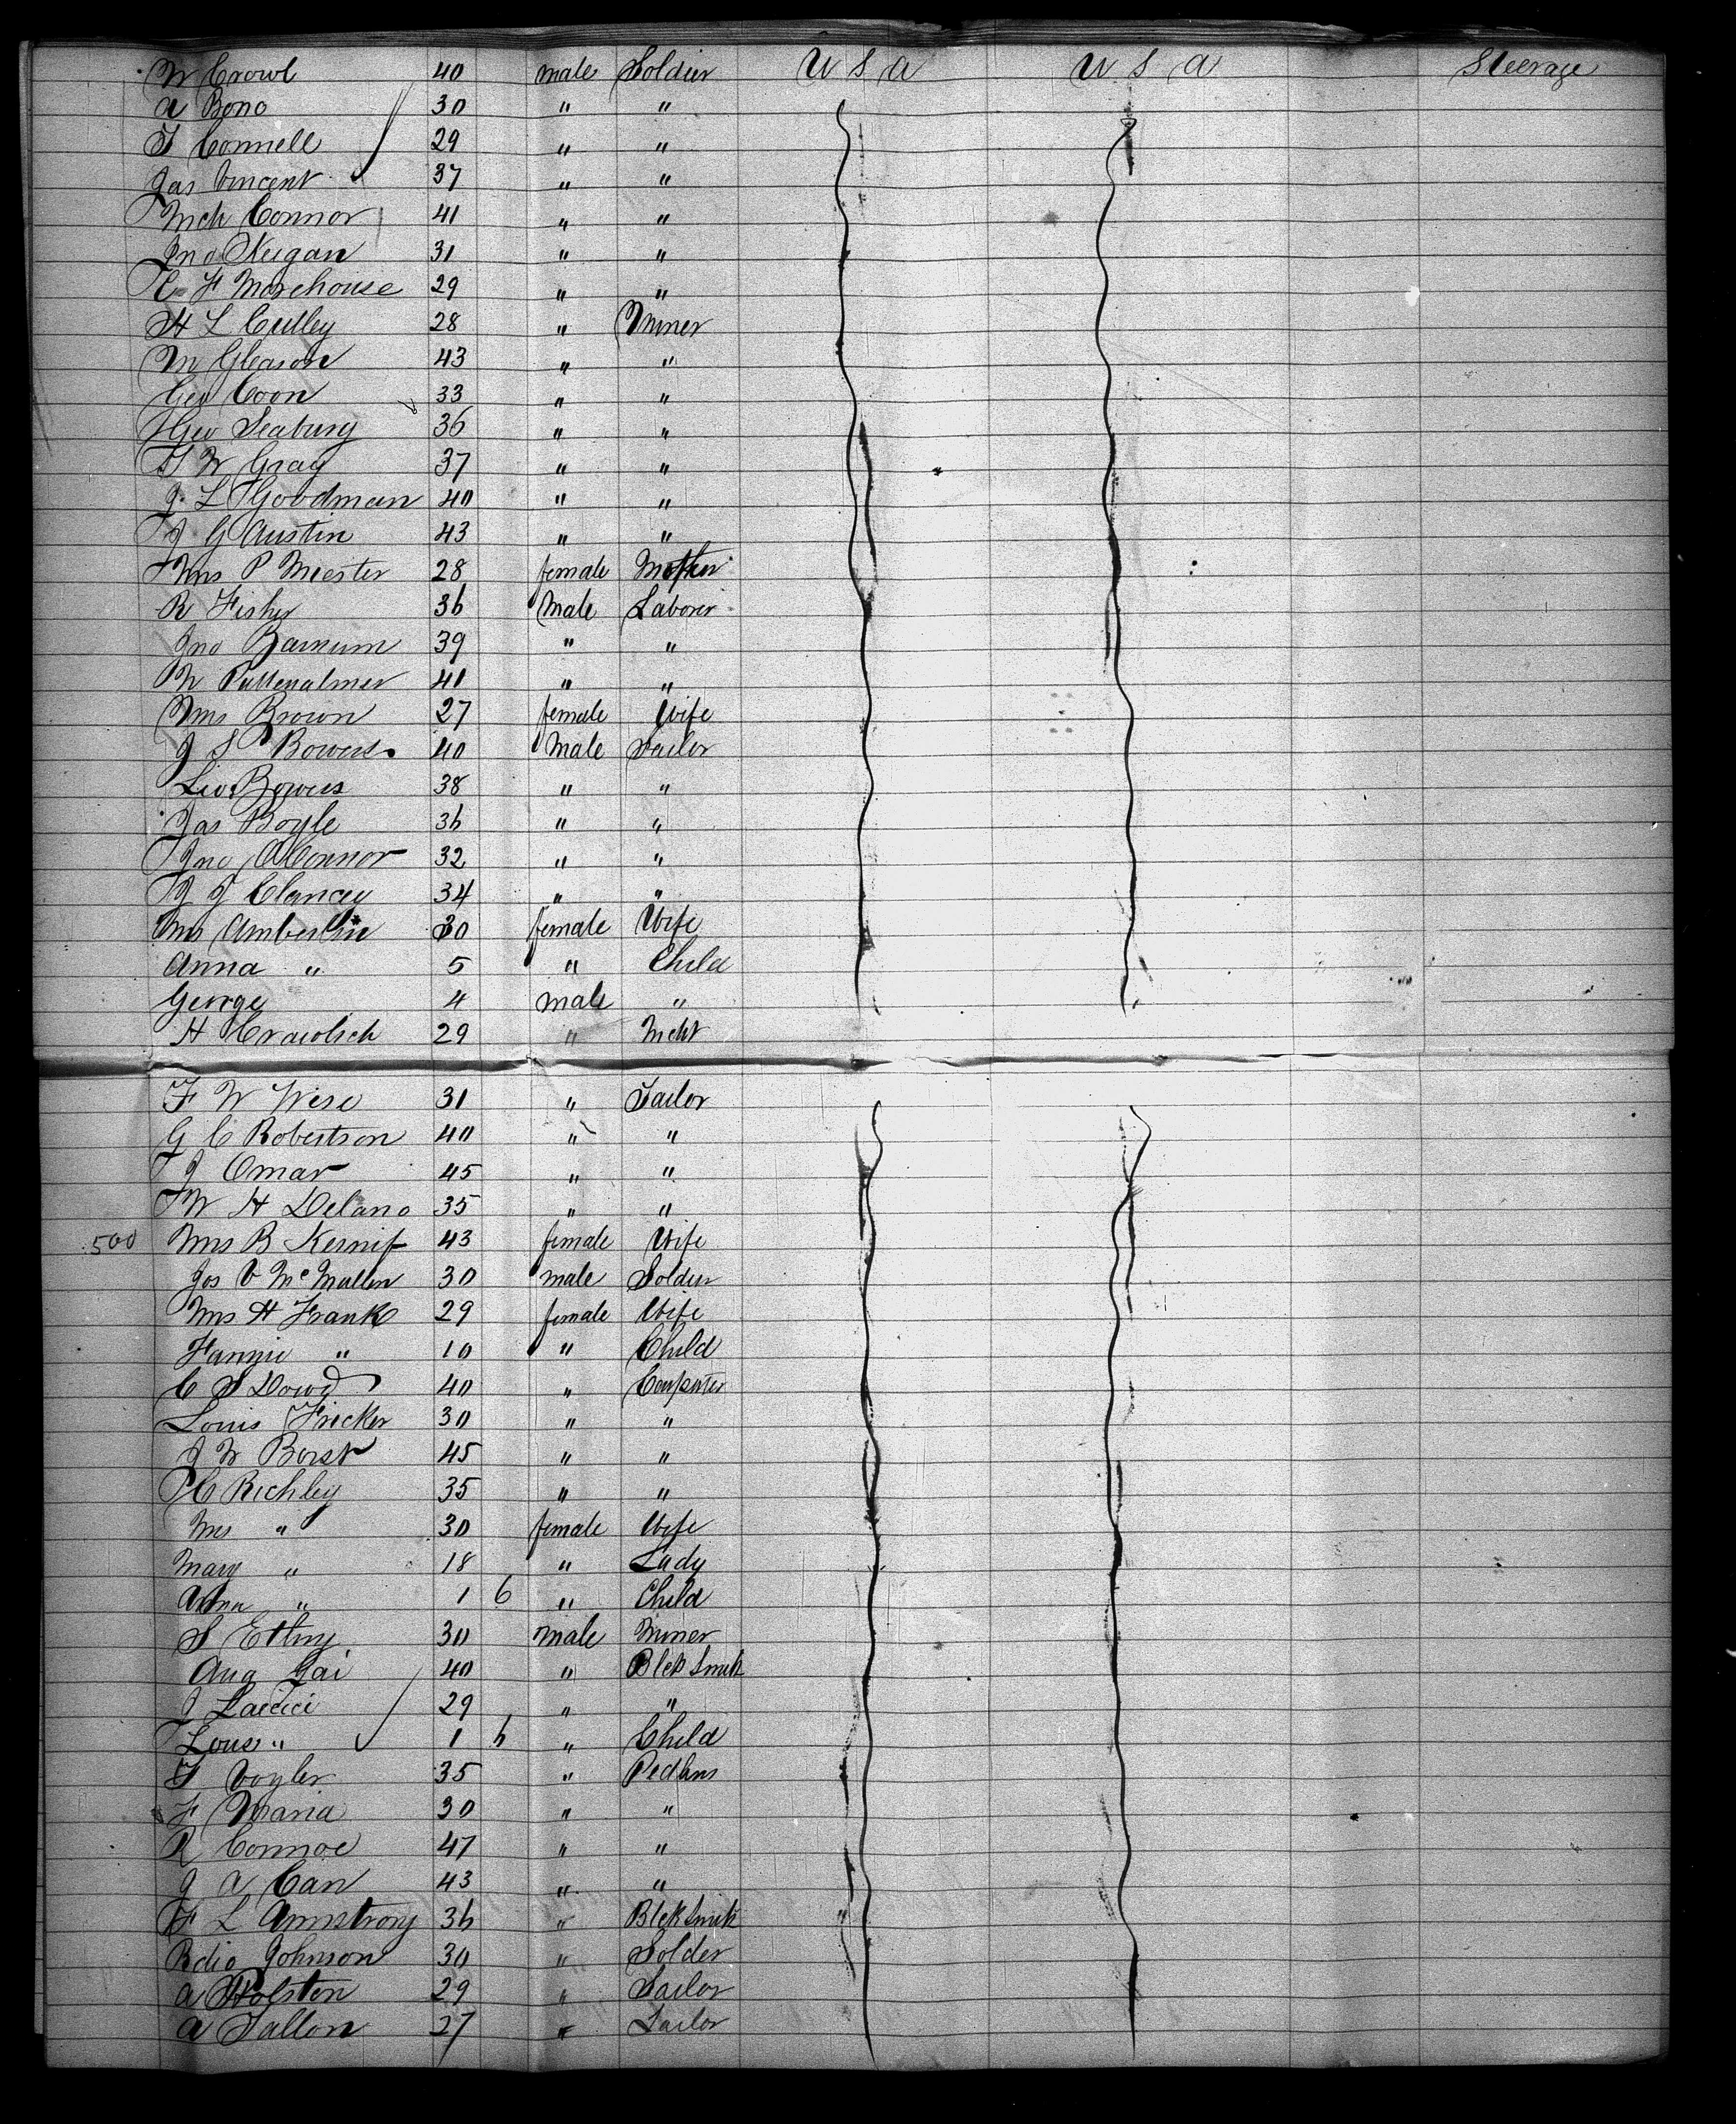 W Crowl 40 male Soldier U S A U S A Steerage
A Bono 30 " "
T Connell 29 " "
Jas Vincent 37 " "
Mch Connor 41 " "
Jno Keegan 31 " "
E F Morehouse 29 " "
H L Culley 28 " Miner
M Gleason 43 " "
Geo Coon 33 " "
Geo Seabury 36 " "
T W Gray 37 " "
J L Goodman 40 " "
J G Austin 43 " "
Mrs P Miester 28 female Mother
R Fisher 36 Male Laborer
Jno Barnum 39 " "
W 41 " "
Mrs Brown 27 female Wife
J S Bowers 40 Male Sailor
Leo Bowers 38 " "
Jas Boyle 36 " "
Jno O'Connor 32 " "
J J Clancey 34 " "
Mrs 30 female Wife
Anna " 5 " Child
George 4 male "
H 29 " Mcht
F W Wise 31 " Tailor
G C Robertson 40 " "
J Omar 45 " "
W H Delano 35 " "
500 Mrs B 43 female Wife
Jos V McMullen 30 male Soldier
Mrs H Frank 29 female Wife
Fannie " 10 " Child
C S Dowd 40 " Carpenter
Louis Fricker 30 " "
J W Borst 45 " "
C Richley 35 " "
Mrs " 30 female Wife
Mary " 18 " Lady
Anna " 1 6 " Child
S 30 Male Miner
Aug Gai 40 " Blck Smith
J 29 " "
Louis " 1 6 " Child
F Vogler 35 " Pedlers
F Maria 30 " "
R 47 " "
J A Can 43 " "
F L Armstrong 36 " Blck Smith
Johnson 30 " Solder
A Holston 29 " Sailor
A Tallon 27 " Sailor